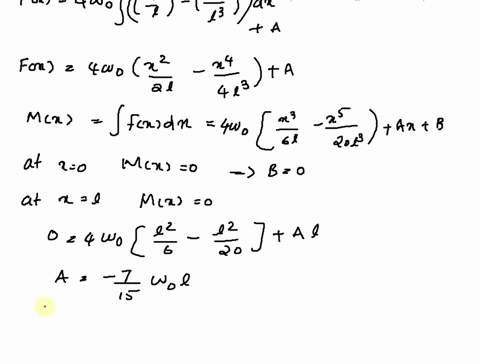 = 4ω₀ ∫((x/l) - (x³/l³))dx + A
F(x) = 4ω₀ (x²/2l - x⁴/4l³) + A
M(x) = ∫f(x)dx = 4ω₀ [x³/6l - x⁵/20l³) + Ax + B
at x=0 M(x)=0 -> B=0
at x=l M(x)=0
0 = 4ω₀ [l²/6 - l²/20] + A l
A = -7/15 ω₀ l